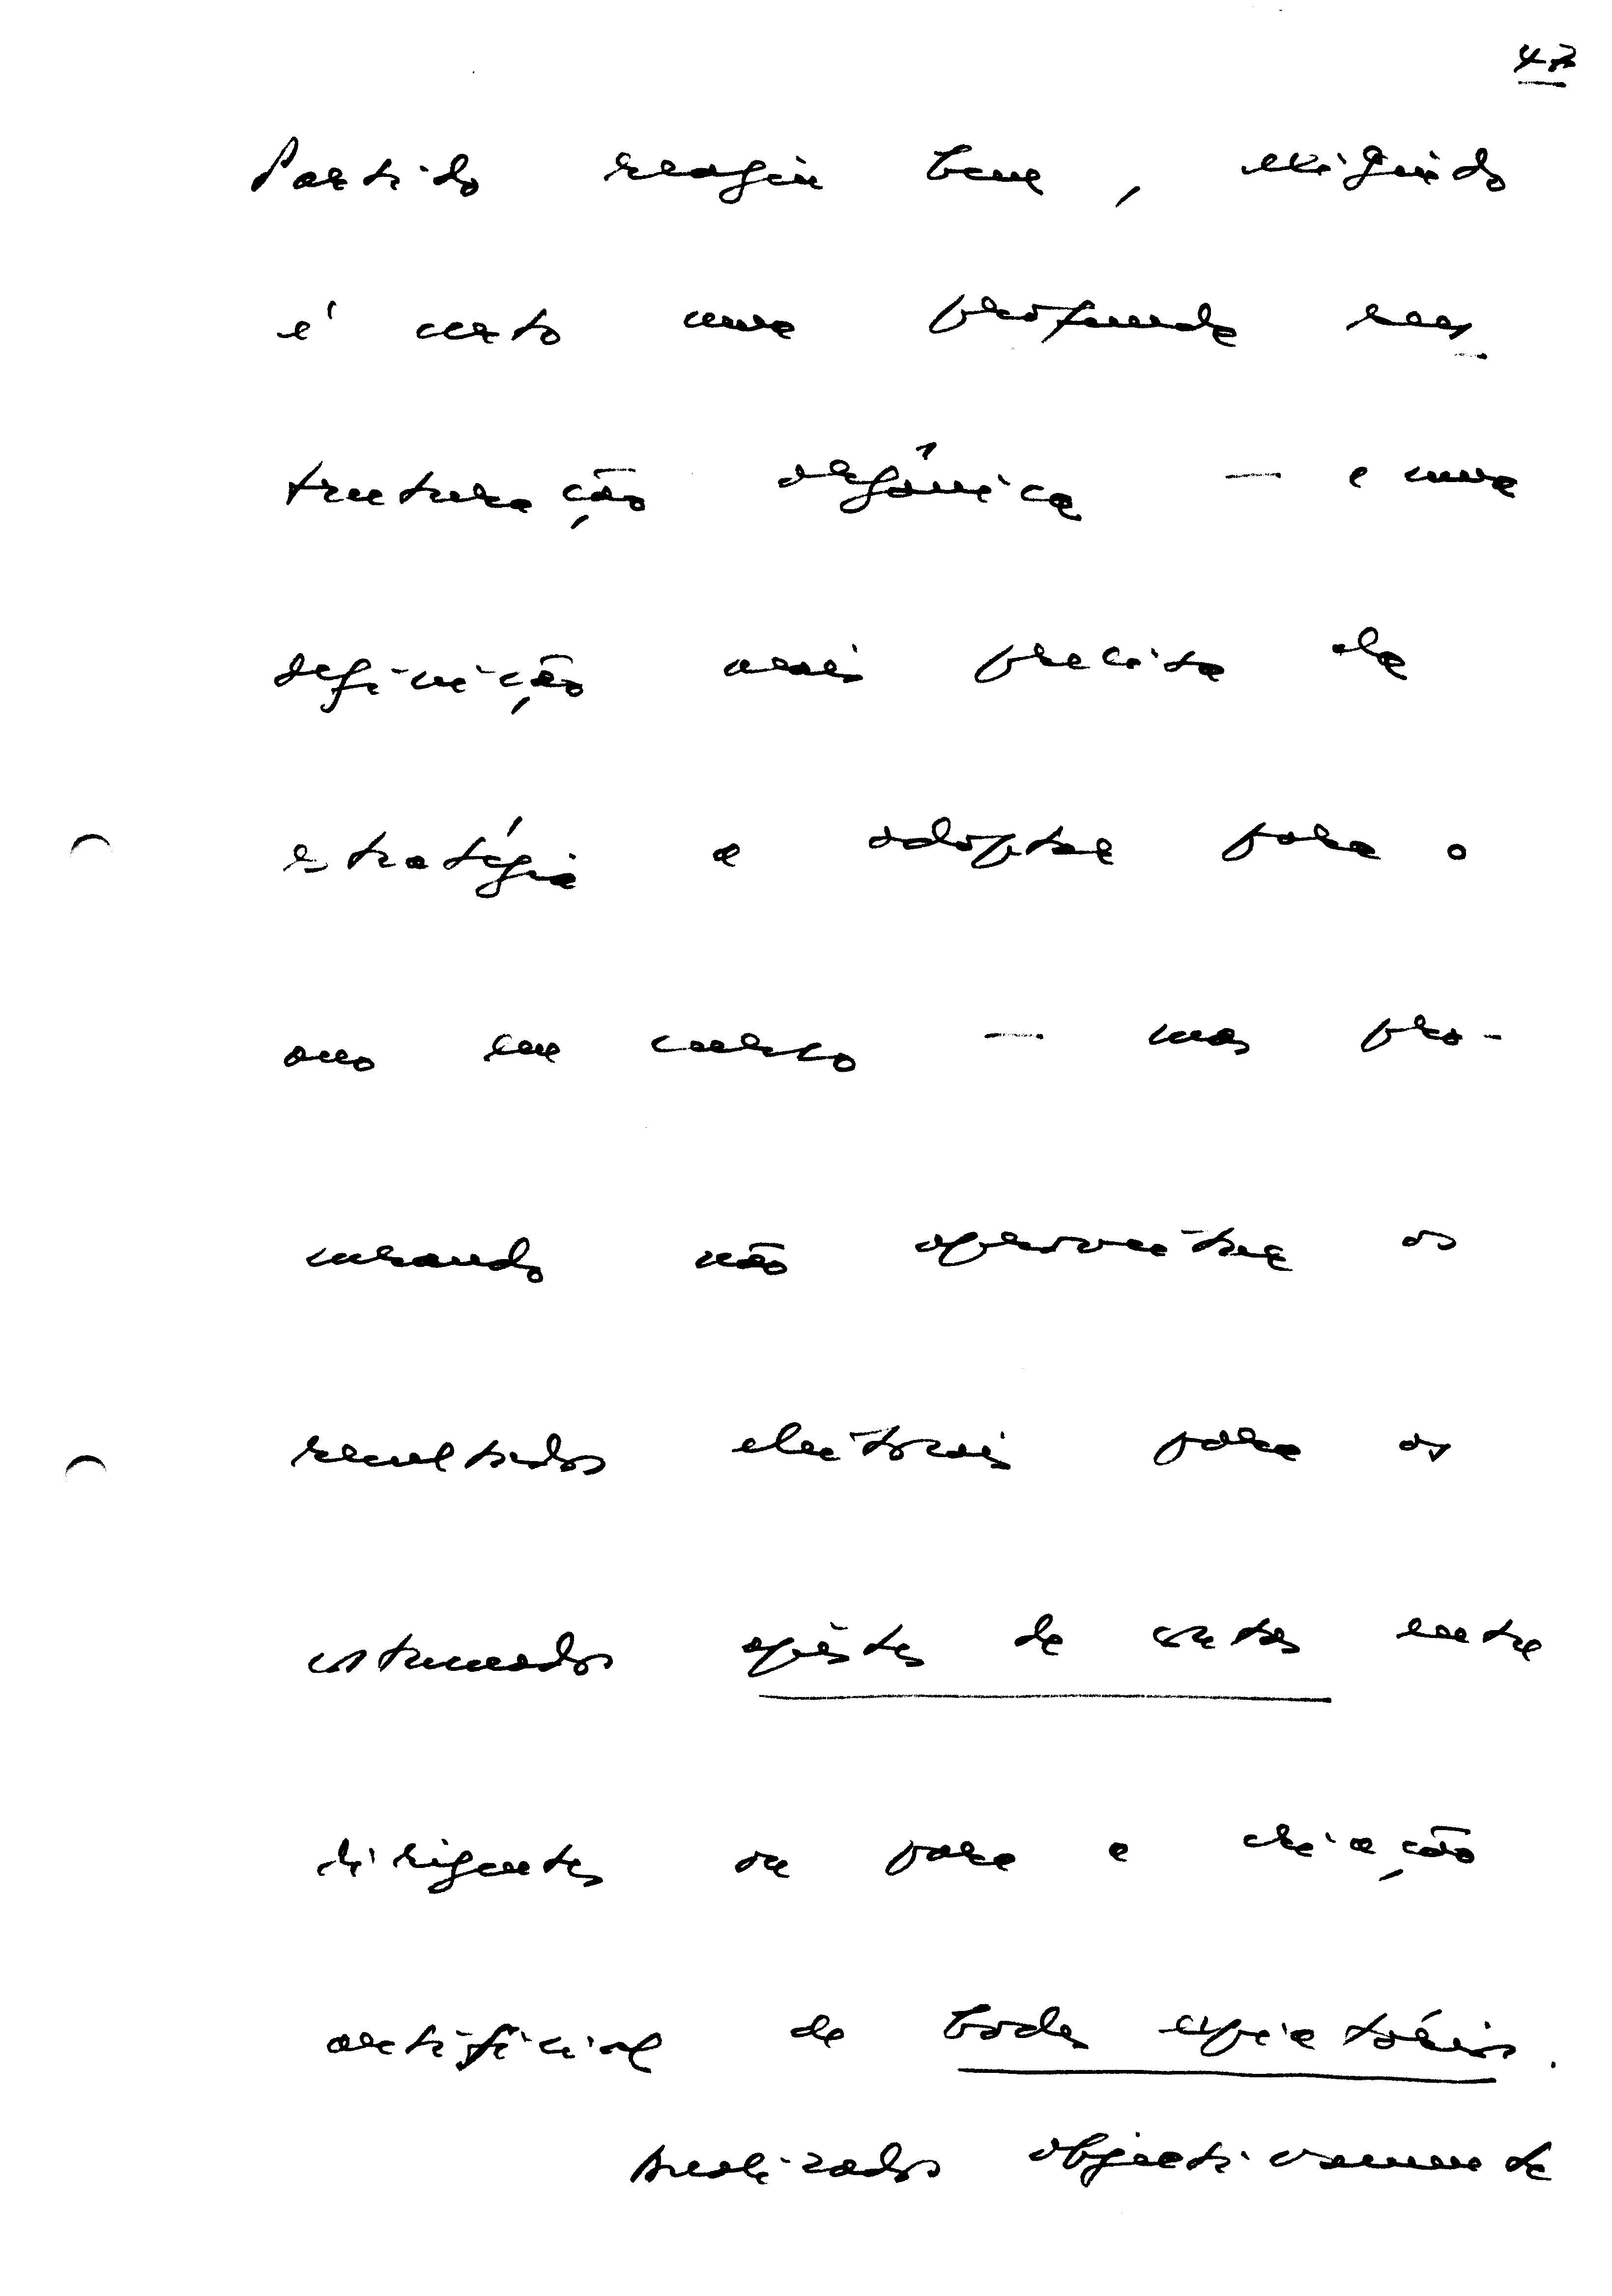 47
Partido reagiu bem, exigindo
é certo uma profunda rees
truturação orgânica — e uma
definição mais precisa da
estratégia a adoptar para o
ano em curso — mas pro-
curando não aproveitar os
resultados eleitorais para os
costumados ajustes de contas entre
dirigentes ou para a criação
artificial de bodes expiatórios.
Analisados objectivamente